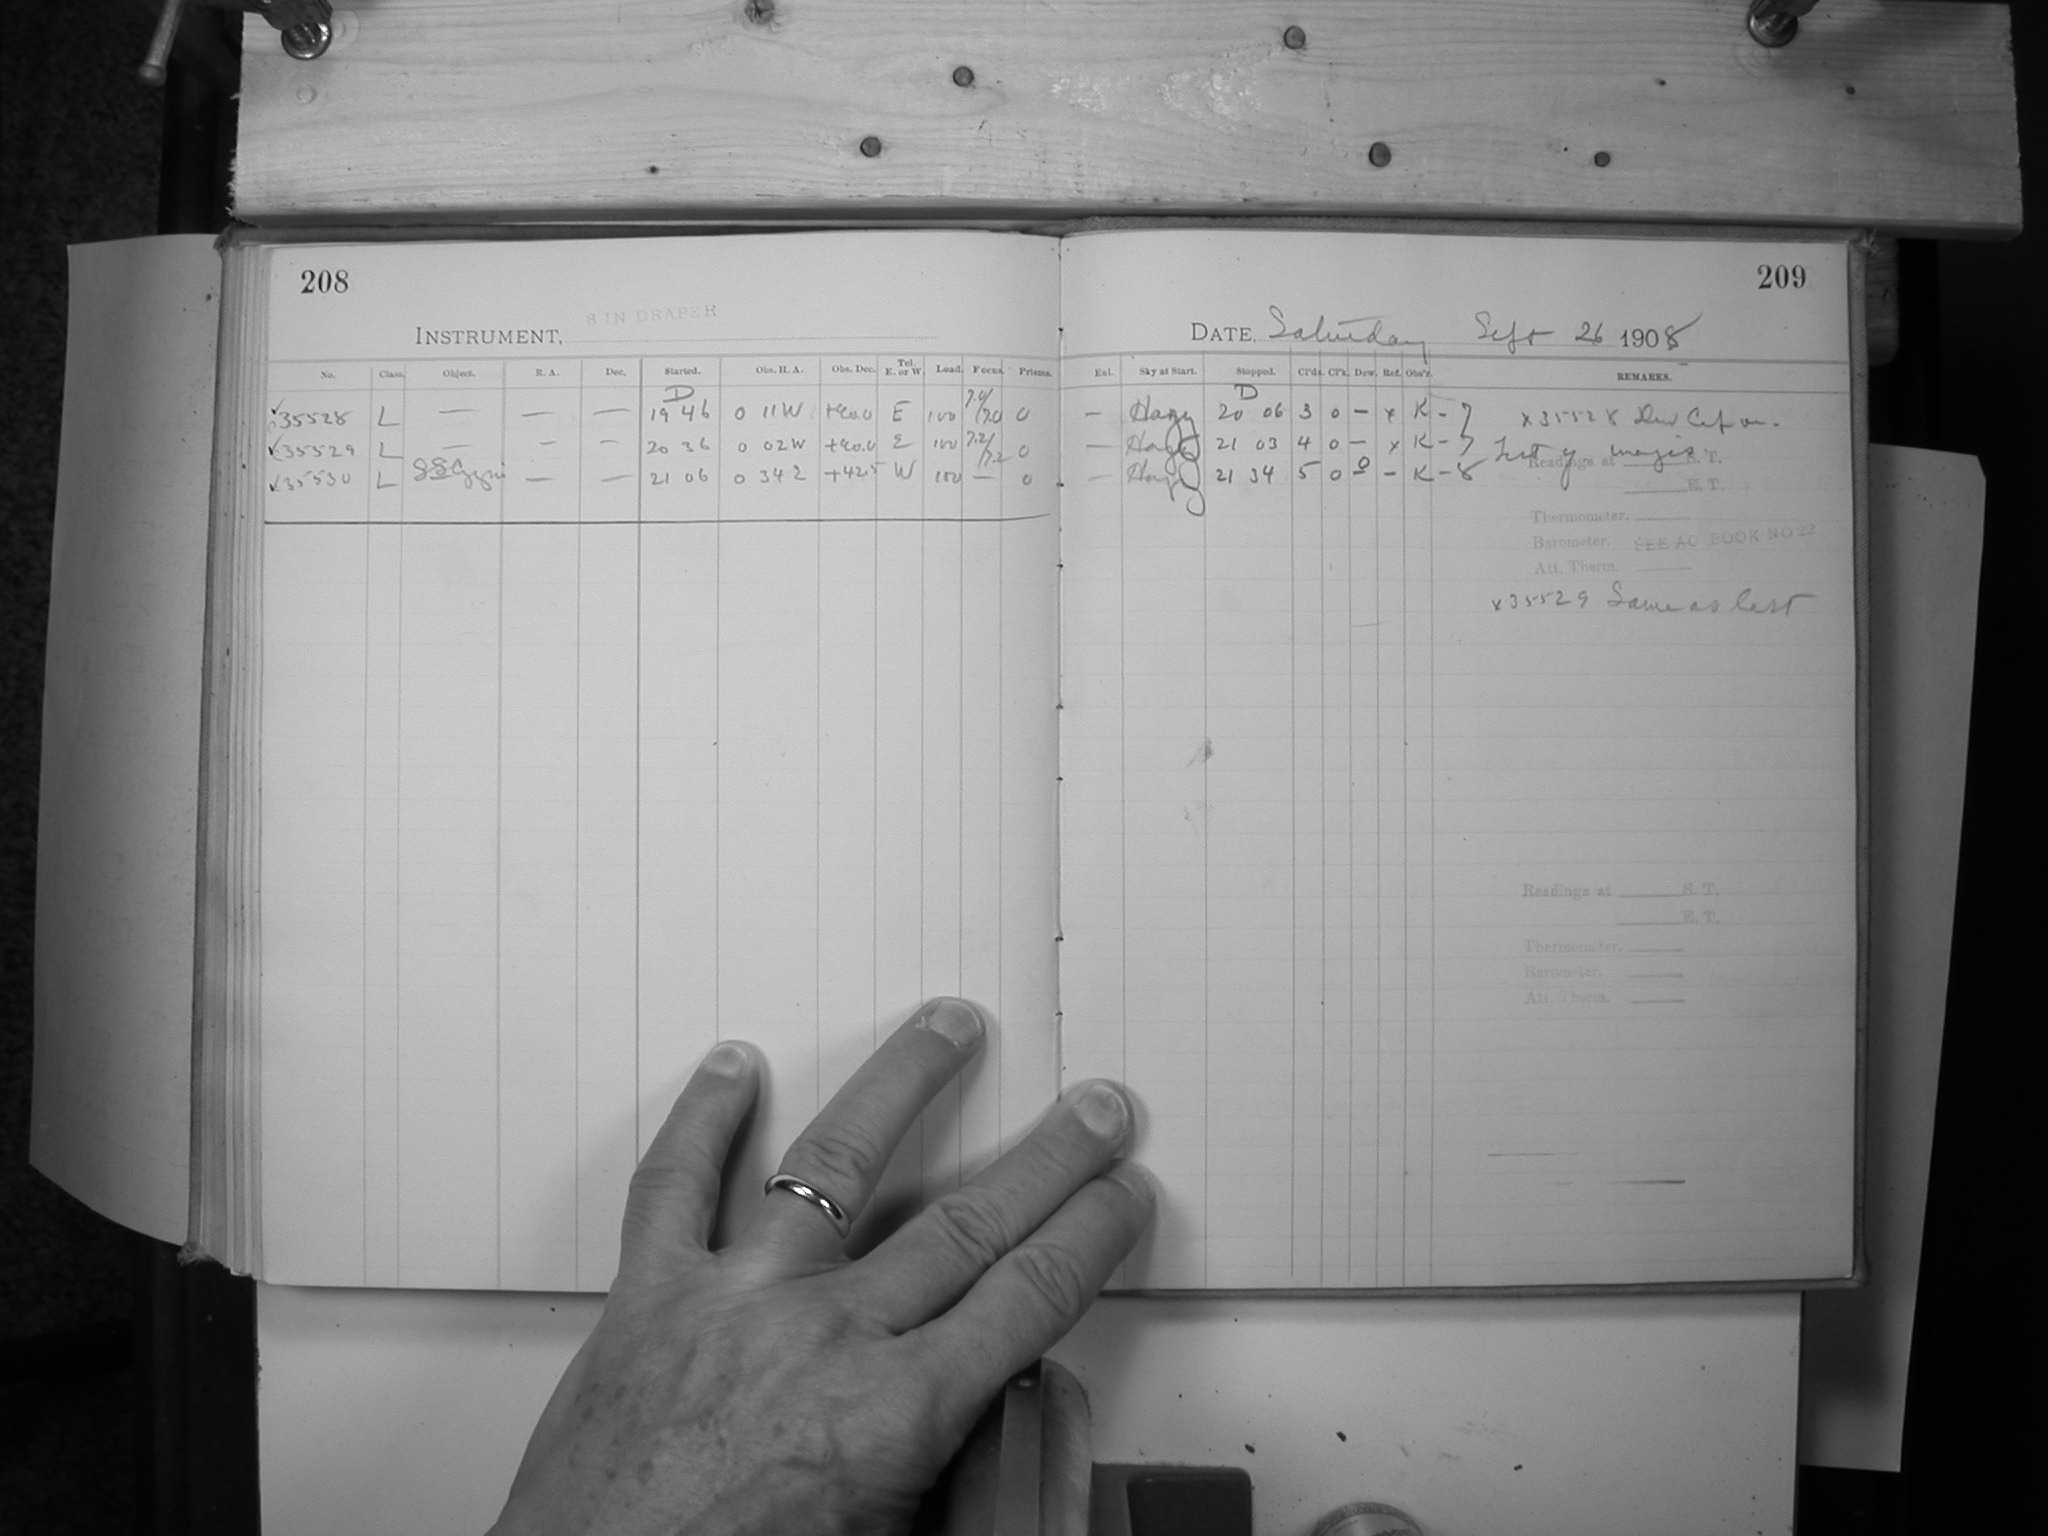 208
8 IN DRAPER
INSTRUMENT,
No. Class. Object. R. A. Dec. Started. Obs. H. A. Obs. Dec. Tel. E. or W. Load. Focus. Prisms.
D
35528 L — — — 19 46 0 11 W +90.0 E 100 7.0/7.0 0
35529 L — — — 20 36 0 02 W +90.0 E 100 7.2/7.2 0
35530 L SS Cygni — — 21 06 0 34 2 +42.5 W 100 — 0
209
DATE, Saturday Sept 26 1908
Exl. Sky at Start. Stopped. Cl'ds. Cl'k. Dew. Ref. Obs'r. REMARKS.
D
— Hazy 20 06 3 0 — x K - 7 x35528 Dew Cap on.
— Hazy 21 03 4 0 — x K - 7 Test of images
— Hazy 21 34 5 0 0 - K - 8
Readings at S. T.
E. T.
Thermometer.
Barometer. SEE AC BOOK NO 22
Att. Therm.
x35529 Same as last
Readings at S. T.
E. T.
Thermometer.
Barometer.
Att. Therm.